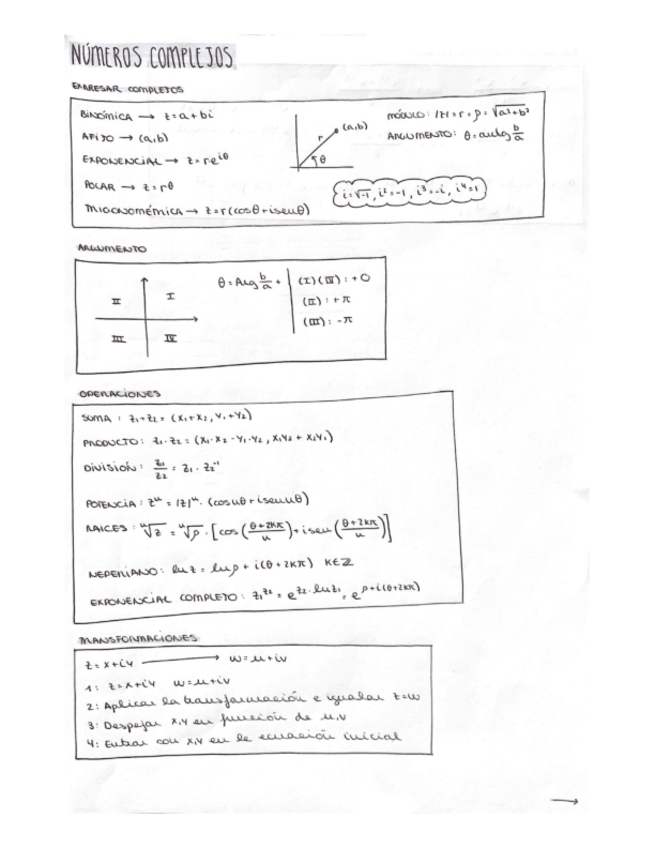 NÚMEROS COMPLEJOS
EXPRESAR COMPLEJOS
BINÓMICA → z = a + bi
AFIJO → (a,b)
EXPONENCIAL → z = re^{iθ}
POLAR → z = r_θ
TRIGONOMÉTRICA → z = r(cosθ + i senθ)
r (a,b)
θ
MÓDULO: |z| = r = ρ = √(a²+b²)
ARGUMENTO: θ = arctg b/a
i = √-1, i² = -1, i³ = -i, i⁴ = 1
ARGUMENTO
II I
III IV
θ = Arg b/a +
(I)(IV): +0
(II): +π
(III): -π
OPERACIONES
SUMA: z₁+z₂ = (x₁+x₂, y₁+y₂)
PRODUCTO: z₁·z₂ = (x₁·x₂ - y₁·y₂, x₁y₂ + x₂y₁)
DIVISIÓN: z₁/z₂ = z₁·z₂⁻¹
POTENCIA: zⁿ = |z|ⁿ·(cos nθ + i sen nθ)
RAICES: ⁿ√z = ⁿ√ρ·[cos((θ+2kπ)/n) + i sen((θ+2kπ)/n)]
NEPERIANO: ln z = ln ρ + i(θ+2kπ) K∈ℤ
EXPONENCIAL COMPLETO: z₁^{z₂} = e^{z₂·ln z₁} = e^{ρ+i(θ+2kπ)}
TRANSFORMACIONES
z = x+iy → w = u+iv
1: z = x+iy w = u+iv
2: Aplicar la transformación e igualar z=w
3: Despejar x,y en función de u,v
4: Entrar con x,y en le ecuación inicial
→